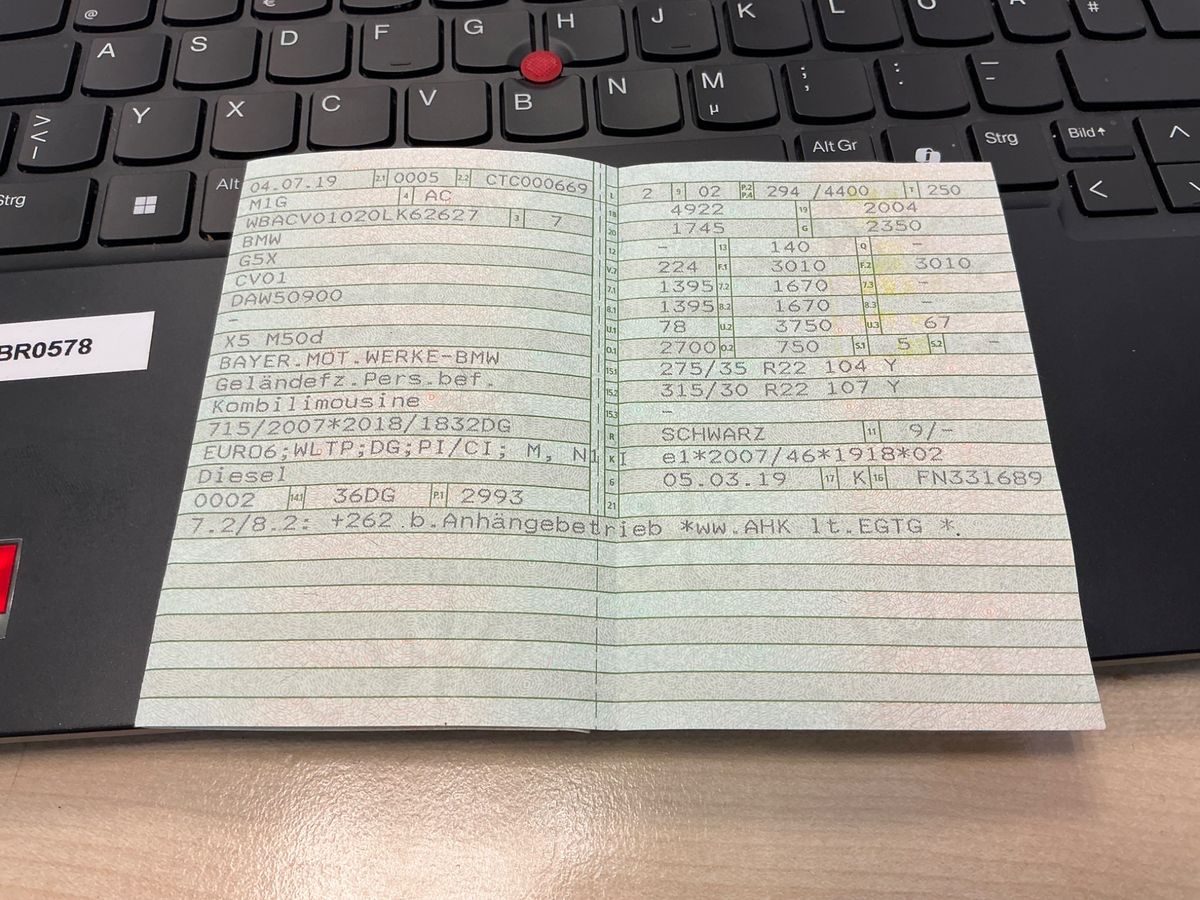 @
€
#
A S D F G H J K L
Y X C V B N M µ ; , : . _ -
> < |
Strg Alt Alt Gr Strg Bild
BR0578
04.07.19 2.1 0005 2.2 CTC000669
M1G 4 AC
WBACV01020LK62627 3 7
BMW
G5X
CV01
DAW50900
-
X5 M50d
BAYER.MOT.WERKE-BMW
Geländefz.Pers.bef.
Kombilimousine
715/2007*2018/1832DG
EURO6;WLTP;DG;PI/CI; M, N1 I
Diesel
0002 14.1 36DG P.1 2993
L 2 9 02 P.2 P.4 294 /4400 T 250
18 4922 19 2004
20 1745 G 2350
12 - 13 140 Q -
V.7 224 F.1 3010 F.2 3010
7.1 1395 7.2 1670 7.3 -
8.1 1395 8.2 1670 8.3 -
U.1 78 U.2 3750 U.3 67
O.1 2700 O.2 750 S.1 5 S.2 -
15.1 275/35 R22 104 Y
15.2 315/30 R22 107 Y
15.3 -
R SCHWARZ 11 9/-
K e1*2007/46*1918*02
6 05.03.19 17 K 16 FN331689
21
7.2/8.2: +262 b.Anhängebetrieb *ww.AHK lt.EGTG *.